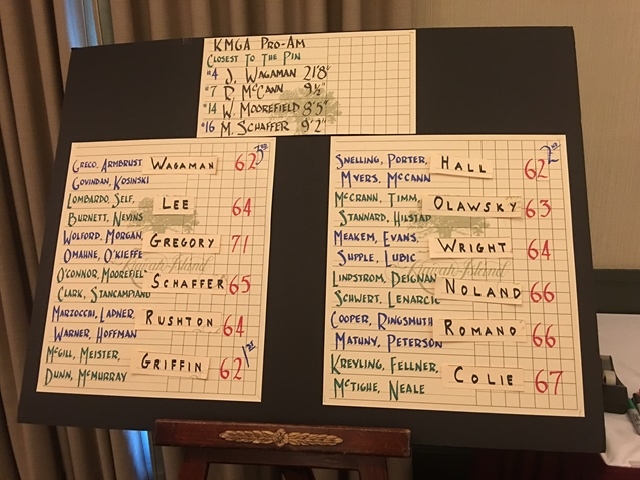 KMGA PRO-AM
CLOSEST TO THE PIN
#4 J. WAGAMAN 21'8"
#7 D. MCCANN 9½"
#14 W. MOOREFIELD 8'5"
#16 M. SCHAFFER 9'2"
GRECO, ARMBRUST WAGAMAN 62 3RD
GOVINDAN, KOSINSKI
LOMBARDO, SELF, LEE 64
BURNETT, NEVINS
WOLFORD, MORGAN, GREGORY 71
OMAHNE, O'KIEFFE
O'CONNOR, MOOREFIEL SCHAFFER 65
CLARK, STANCAMPIANO
MARZOCCHI, LADNER, RUSHTON 64
WARNER, HOFFMAN
MCGILL, MEISTER, GRIFFIN 62 1ST
DUNN, MCMURRAY
SNELLING, PORTER, HALL 62 2ND
MYERS, MCCANN
MCCRANN, TIMM, OLAWSKY 63
STANNARD, HILSTAD
MEAKEM, EVANS, WRIGHT 64
SUPPLE, LUBIC
LINDSTROM, DEIGNAN NOLAND 66
SCHWERT, LENARCIC
COOPER, RINGSMUTH ROMANO 66
MATUNY, PETERSON
KREYLING, FELLNER, COLIE 67
MCTIGHE, NEALE